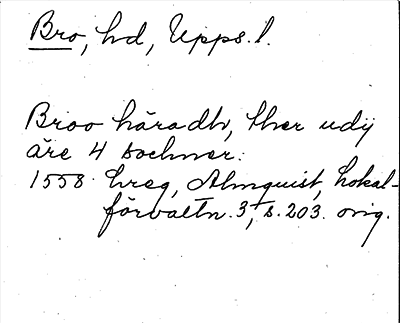 Bro, hd, Upps. l.
Broo häradh, ther udij
äre 4 sochner:
1558 hreg, Almquist, Lokal-
förvaltn. 3, s. 203. orig.